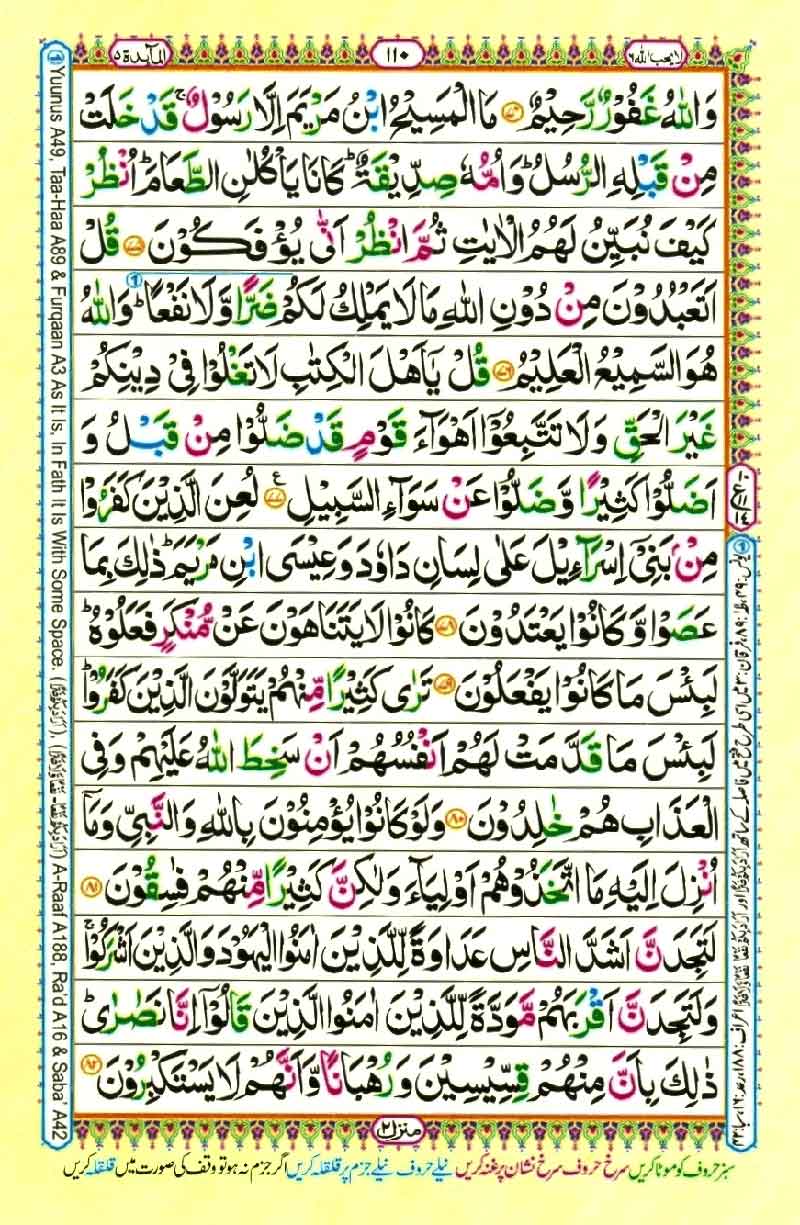 لا یحب اللہ ۶
۱۱۰
المآىِٕدة ۵
وَاللّٰهُ غَفُوْرٌ رَّحِیْمٌ ﴿۷۴﴾ مَا الْمَسِیْحُ ابْنُ مَرْیَمَ اِلَّا رَسُوْلٌ ۚ قَدْ خَلَتْ
مِنْ قَبْلِهِ الرُّسُلُ ؕ وَاُمُّهٗ صِدِّیْقَةٌ ؕ كَانَا یَاْكُلٰنِ الطَّعَامَ ؕ اُنْظُرْ
كَیْفَ نُبَیِّنُ لَهُمُ الْاٰیٰتِ ثُمَّ انْظُرْ اَنّٰى یُؤْفَكُوْنَ ﴿۷۵﴾ قُلْ
اَتَعْبُدُوْنَ مِنْ دُوْنِ اللّٰهِ مَا لَا یَمْلِكُ لَكُمْ ضَرًّا وَّلَا نَفْعًا ؕ وَاللّٰهُ
هُوَ السَّمِیْعُ الْعَلِیْمُ ﴿۷۶﴾ قُلْ یٰۤاَهْلَ الْكِتٰبِ لَا تَغْلُوْا فِیْ دِیْنِكُمْ
غَیْرَ الْحَقِّ وَلَا تَتَّبِعُوْۤا اَهْوَآءَ قَوْمٍ قَدْ ضَلُّوْا مِنْ قَبْلُ وَ
اَضَلُّوْا كَثِیْرًا وَّضَلُّوْا عَنْ سَوَآءِ السَّبِیْلِ ﴿۷۷﴾ لُعِنَ الَّذِیْنَ كَفَرُوْا
مِنْۢ بَنِیْۤ اِسْرَآءِیْلَ عَلٰى لِسَانِ دَاوٗدَ وَعِیْسَى ابْنِ مَرْیَمَ ؕ ذٰلِكَ بِمَا
عَصَوْا وَّكَانُوْا یَعْتَدُوْنَ ﴿۷۸﴾ كَانُوْا لَا یَتَنَاهَوْنَ عَنْ مُّنْكَرٍ فَعَلُوْهُ ؕ
لَبِئْسَ مَا كَانُوْا یَفْعَلُوْنَ ﴿۷۹﴾ تَرٰى كَثِیْرًا مِّنْهُمْ یَتَوَلَّوْنَ الَّذِیْنَ كَفَرُوْا ؕ
لَبِئْسَ مَا قَدَّمَتْ لَهُمْ اَنْفُسُهُمْ اَنْ سَخِطَ اللّٰهُ عَلَیْهِمْ وَفِی
الْعَذَابِ هُمْ خٰلِدُوْنَ ﴿۸۰﴾ وَلَوْ كَانُوْا یُؤْمِنُوْنَ بِاللّٰهِ وَالنَّبِیِّ وَمَاۤ
اُنْزِلَ اِلَیْهِ مَا اتَّخَذُوْهُمْ اَوْلِیَآءَ وَلٰكِنَّ كَثِیْرًا مِّنْهُمْ فٰسِقُوْنَ ﴿۸۱﴾
لَتَجِدَنَّ اَشَدَّ النَّاسِ عَدَاوَةً لِّلَّذِیْنَ اٰمَنُوا الْیَهُوْدَ وَالَّذِیْنَ اَشْرَكُوْا ۚ
وَلَتَجِدَنَّ اَقْرَبَهُمْ مَّوَدَّةً لِّلَّذِیْنَ اٰمَنُوا الَّذِیْنَ قَالُوْۤا اِنَّا نَصٰرٰى ؕ
ذٰلِكَ بِاَنَّ مِنْهُمْ قِسِّیْسِیْنَ وَرُهْبَانًا وَّاَنَّهُمْ لَا یَسْتَكْبِرُوْنَ ﴿۸۲﴾
منزل ۲
سبز حروف کو موٹا کریں سرخ حروف سرخ نشان پر غنہ کریں نیلے حروف نیلے جزم پر قلقلہ کریں اگر جزم نہ ہو تو وقف کی صورت میں قلقلہ کریں
Yuunus A49, Taa-Haa A89 & Furqaan A3 As It Is, In Fath It Is With Some Space. A-Raaf A188, Ra'd A16 & Saba' A42